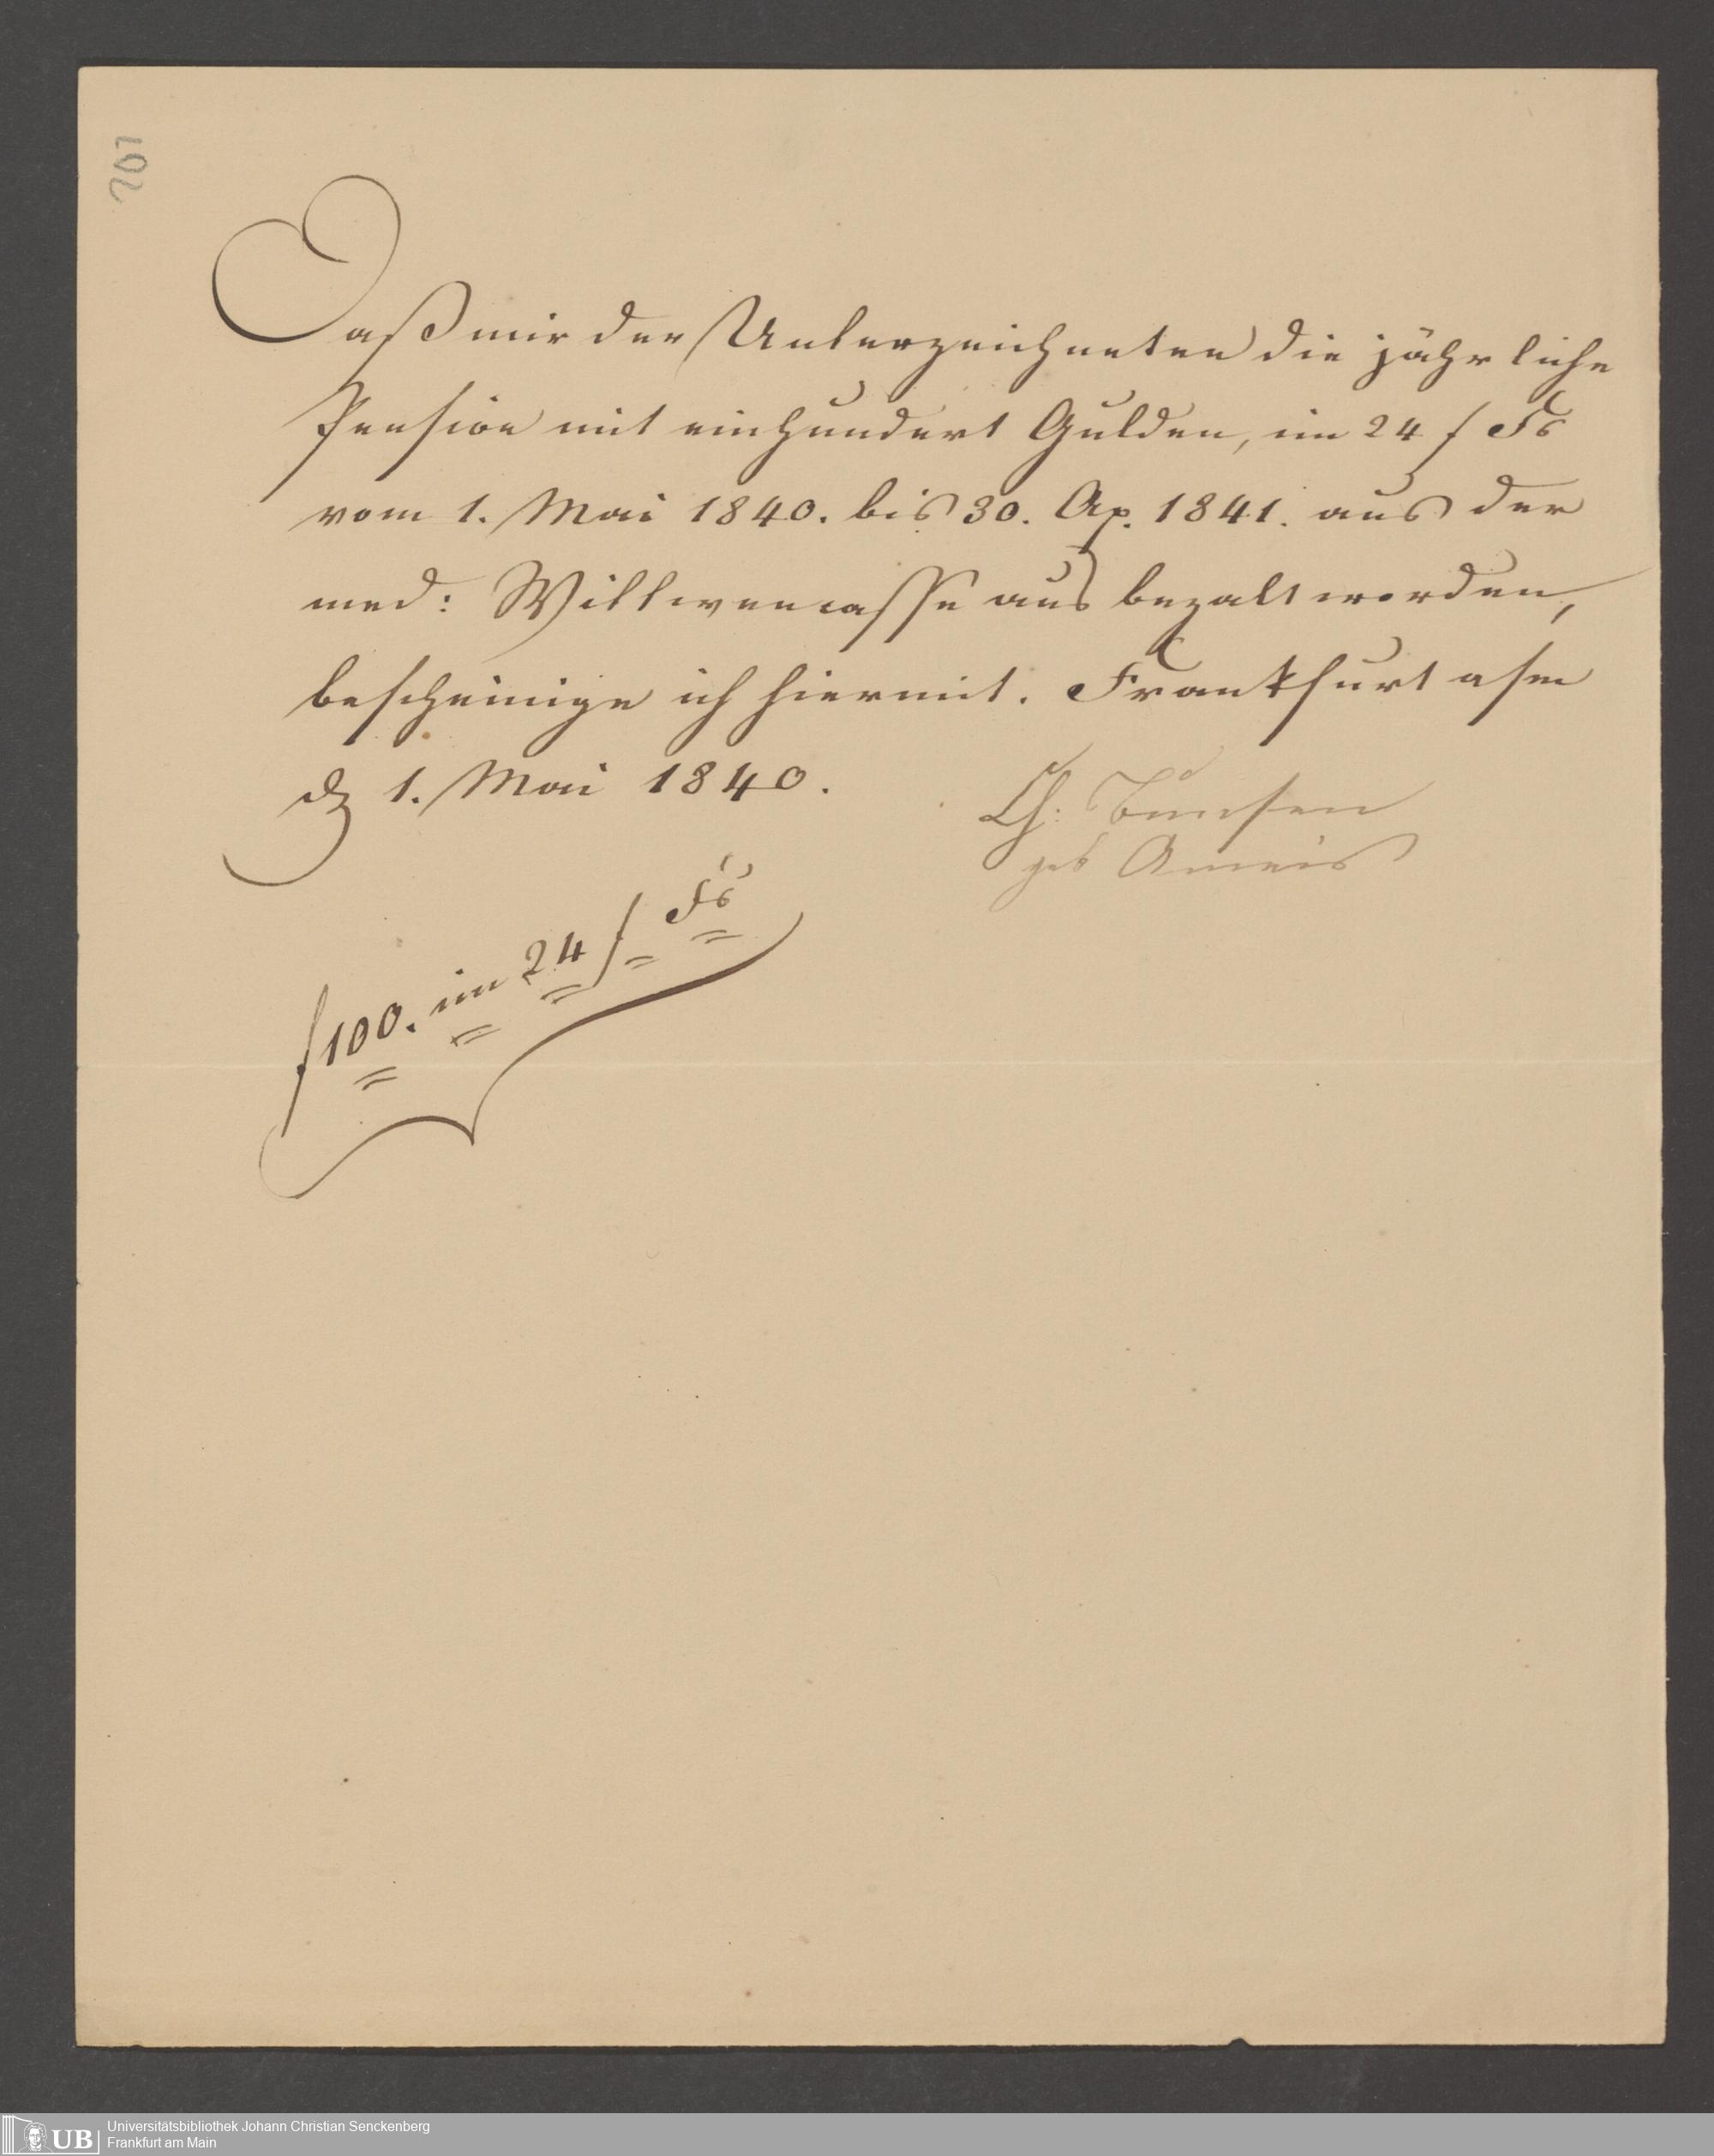 102
Daß mir der Unterzeichneten die jährliche
Pension mit einhundert Gulden, im 24 f Fs
vom 1. Mai 1840. bis 30. Ap. 1841. aus der
med: Wittwencasse aus bezalt worden,
bescheinige ich hiermit. Frankfurt a/m
d 1. Mai 1840.
Ch: Bunsen
geb Ameis
f 100. im 24 f Fs
UB Universitätsbibliothek Johann Christian Senckenberg
Frankfurt am Main